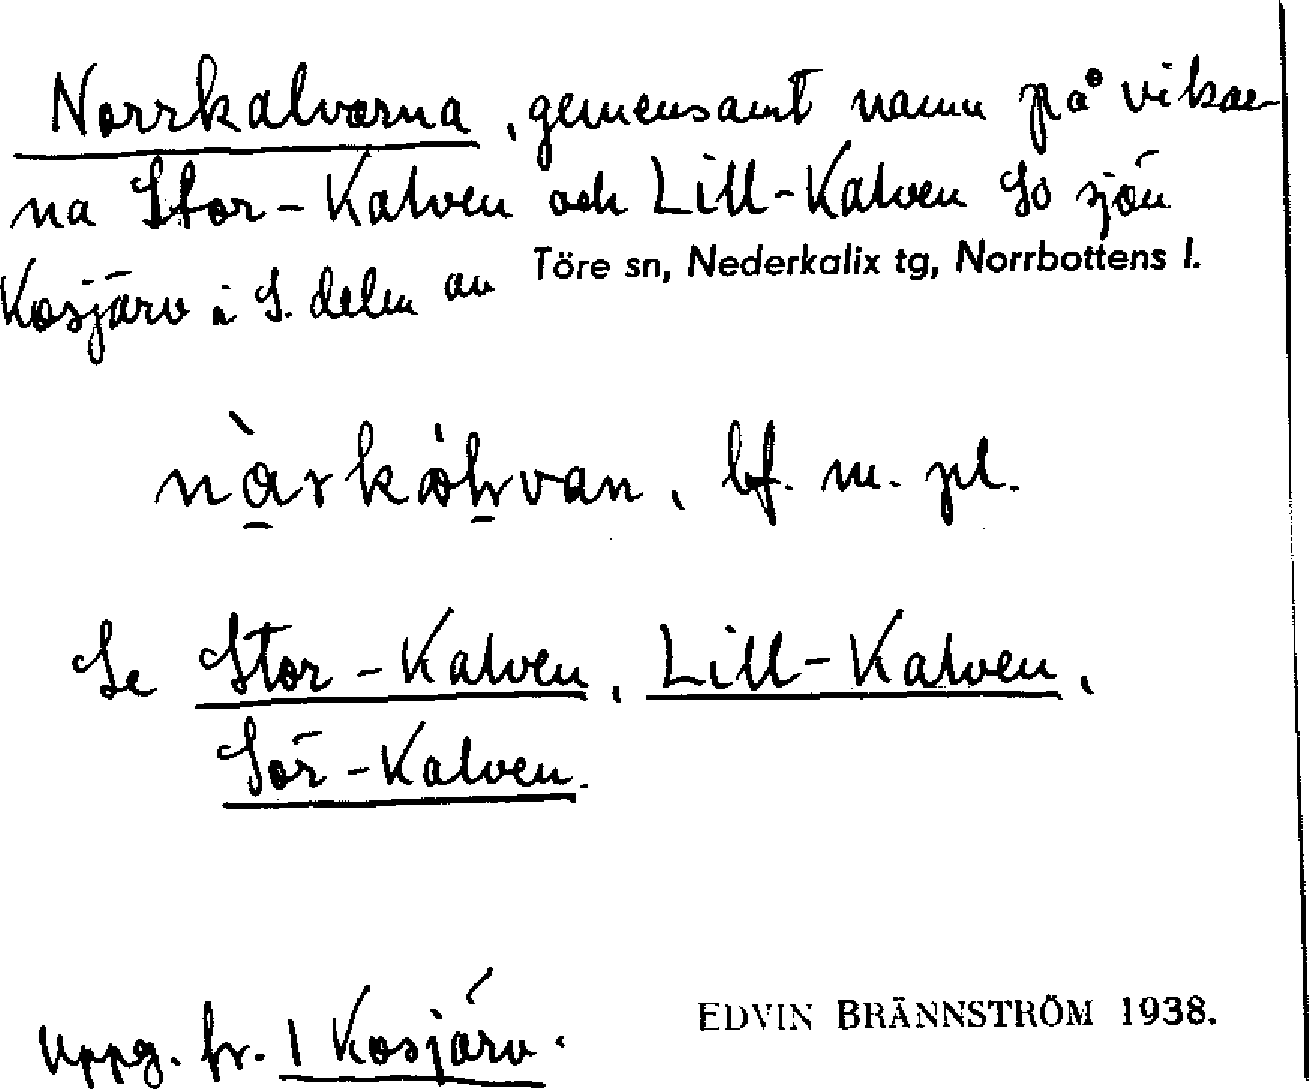 Norrkalvarna, gemensamt namn på vikar-
na Stor-Kalven och Lill-Kalven So sjön
Kosjärv i S. delen av Töre sn, Nederkalix tg, Norrbottens l.
bf. m. pl.
Se Stor-Kalven, Lill-Kalven,
Sör-Kalven.
Uppg. fr. 1 Kosjärv.
EDVIN BRÄNNSTRÖM 1938.